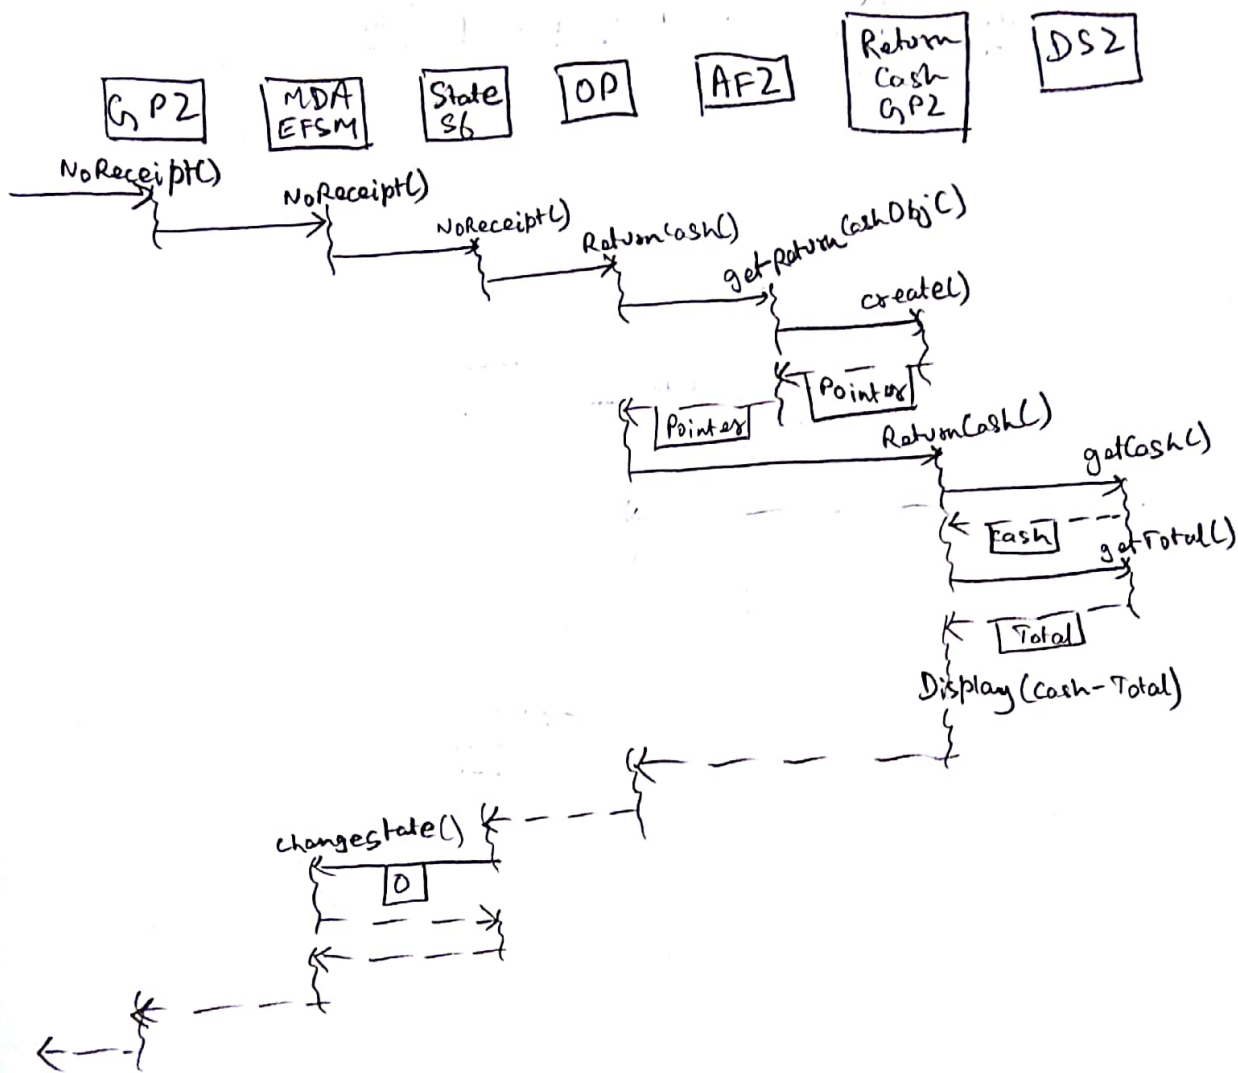 GP2
MDA
EFSM
State
S6
OP
AF2
Return
Cash
GP2
DS2
NoReceipt()
NoReceipt()
NoReceipt()
ReturnCash()
getReturnCashObj()
create()
Pointer
Pointer
ReturnCash()
getCash()
cash
getTotal()
Total
Display(cash-Total)
changestate()
0